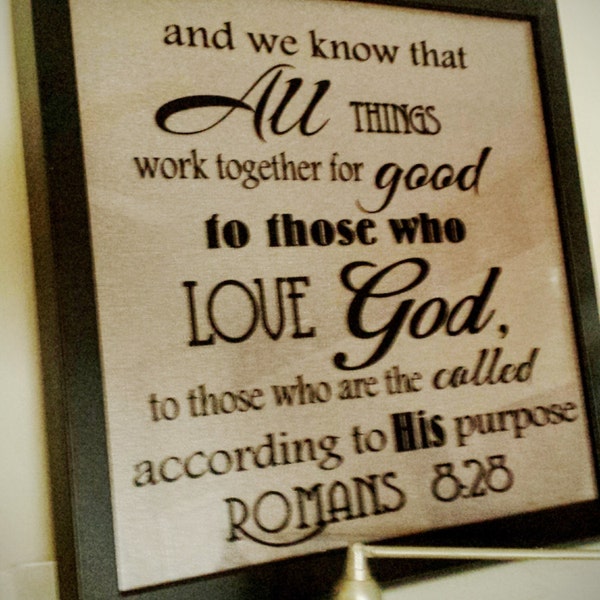 and we know that
All THINGS
work together for good
to those who
LOVE God,
to those who are the called
according to His purpose
ROMANS 8:28